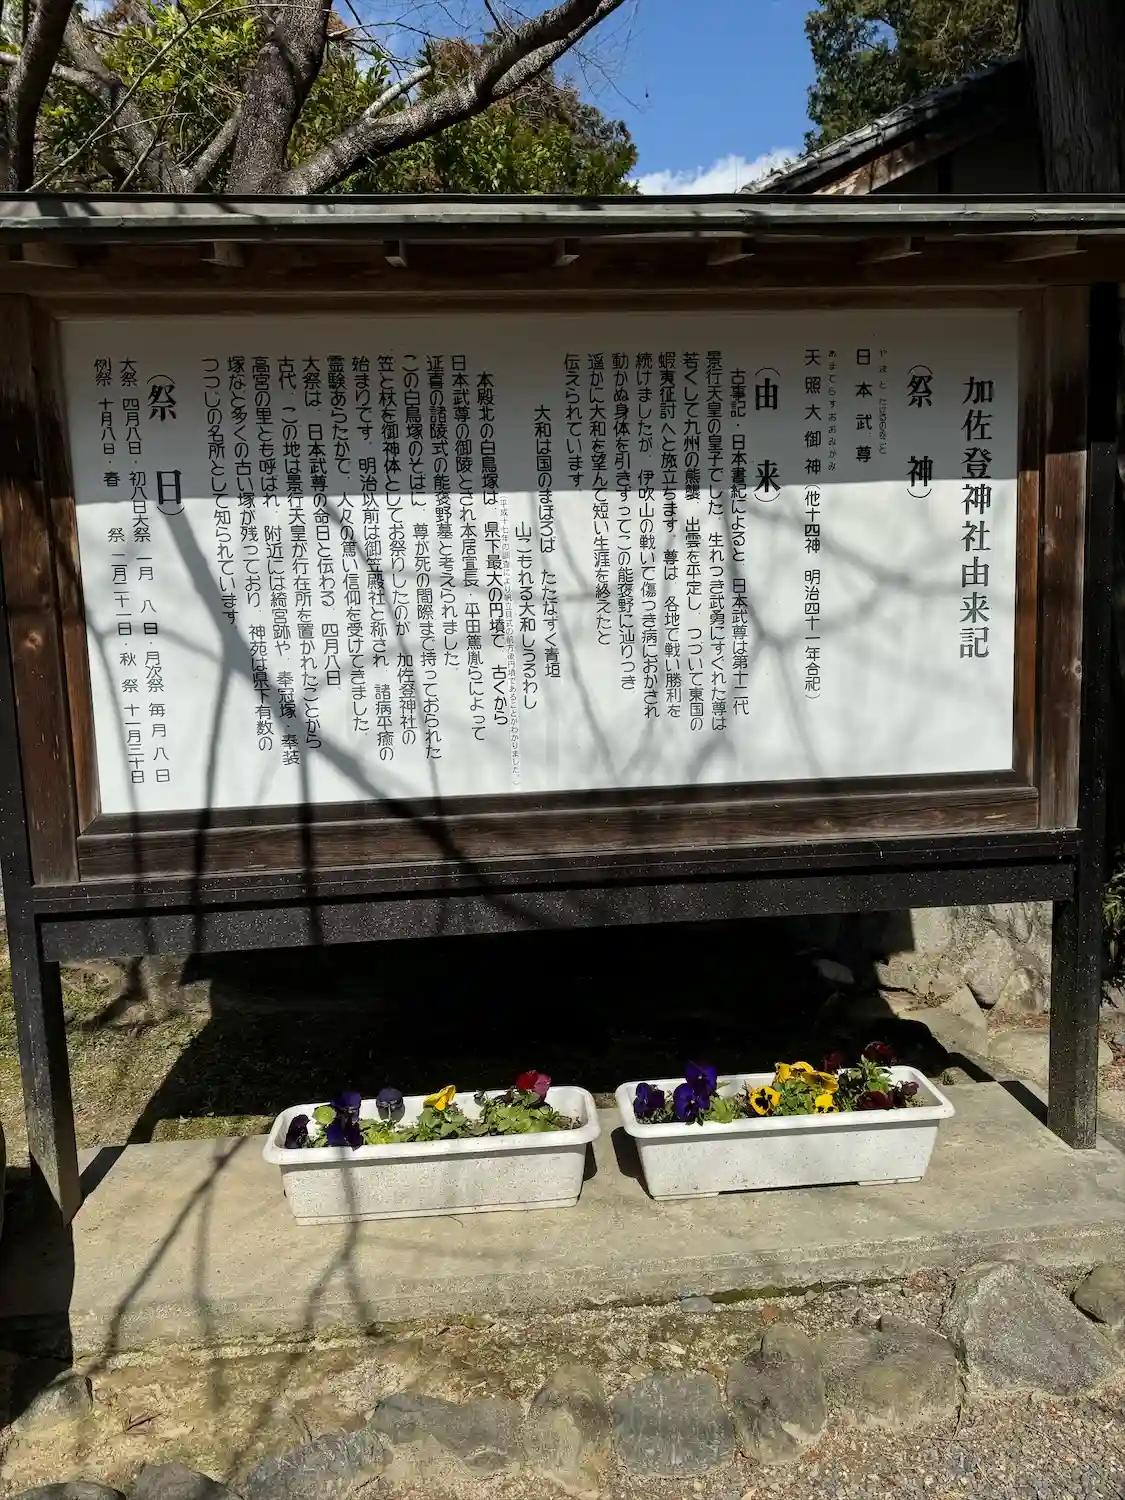 加佐登神社由来記
（祭　神）
やまとたけるのみこと
日本武尊
あまてらすおおみかみ
天照大御神（他十四神　明治四十一年合祀）
（由　来）
古事記・日本書紀によると　日本武尊は第十二代
景行天皇の皇子でした　生れつき武勇にすぐれた尊は
若くして九州の熊襲　出雲を平定し　つづいて東国の
蝦夷征討へと旅立ちます　尊は　各地で戦い勝利を
続けましたが　伊吹山の戦いで傷つき病におかされ
動かぬ身体を引きずってこの能褒野に辿りつき
遥かに大和を望んで短い生涯を終えたと
伝えられています
大和は国のまほろば　たたなずく青垣
山ごもれる大和しうるわし
（平成十七年の調査により帆立貝式の前方後円墳であることがわかりました。）
本殿北の白鳥塚は　県下最大の円墳で　古くから
日本武尊の御陵とされ本居宣長・平田篤胤らによって
延喜の諸陵式の能褒野墓と考えられました
この白鳥塚のそばに　尊が死の間際まで持っておられた
笠と杖を御神体としてお祭りしたのが　加佐登神社の
始まりです　明治以前は御笠殿社と称され　諸病平癒の
霊験あらたかで　人々の篤い信仰を受けてきました
大祭は　日本武尊の命日と伝わる　四月八日
古代　この地は景行天皇が行在所を置かれたことから
高宮の里とも呼ばれ　附近には綺宮跡や　奉冠塚・奉装
塚など多くの古い塚が残っており　神苑は県下有数の
つつじの名所として知られています
（祭　日）
大祭　四月八日・初八日大祭　一月　八　日・月次祭　毎　月　八　日
例祭　十月八日・春　　祭　二月二十一日・秋　祭　十一月二十日